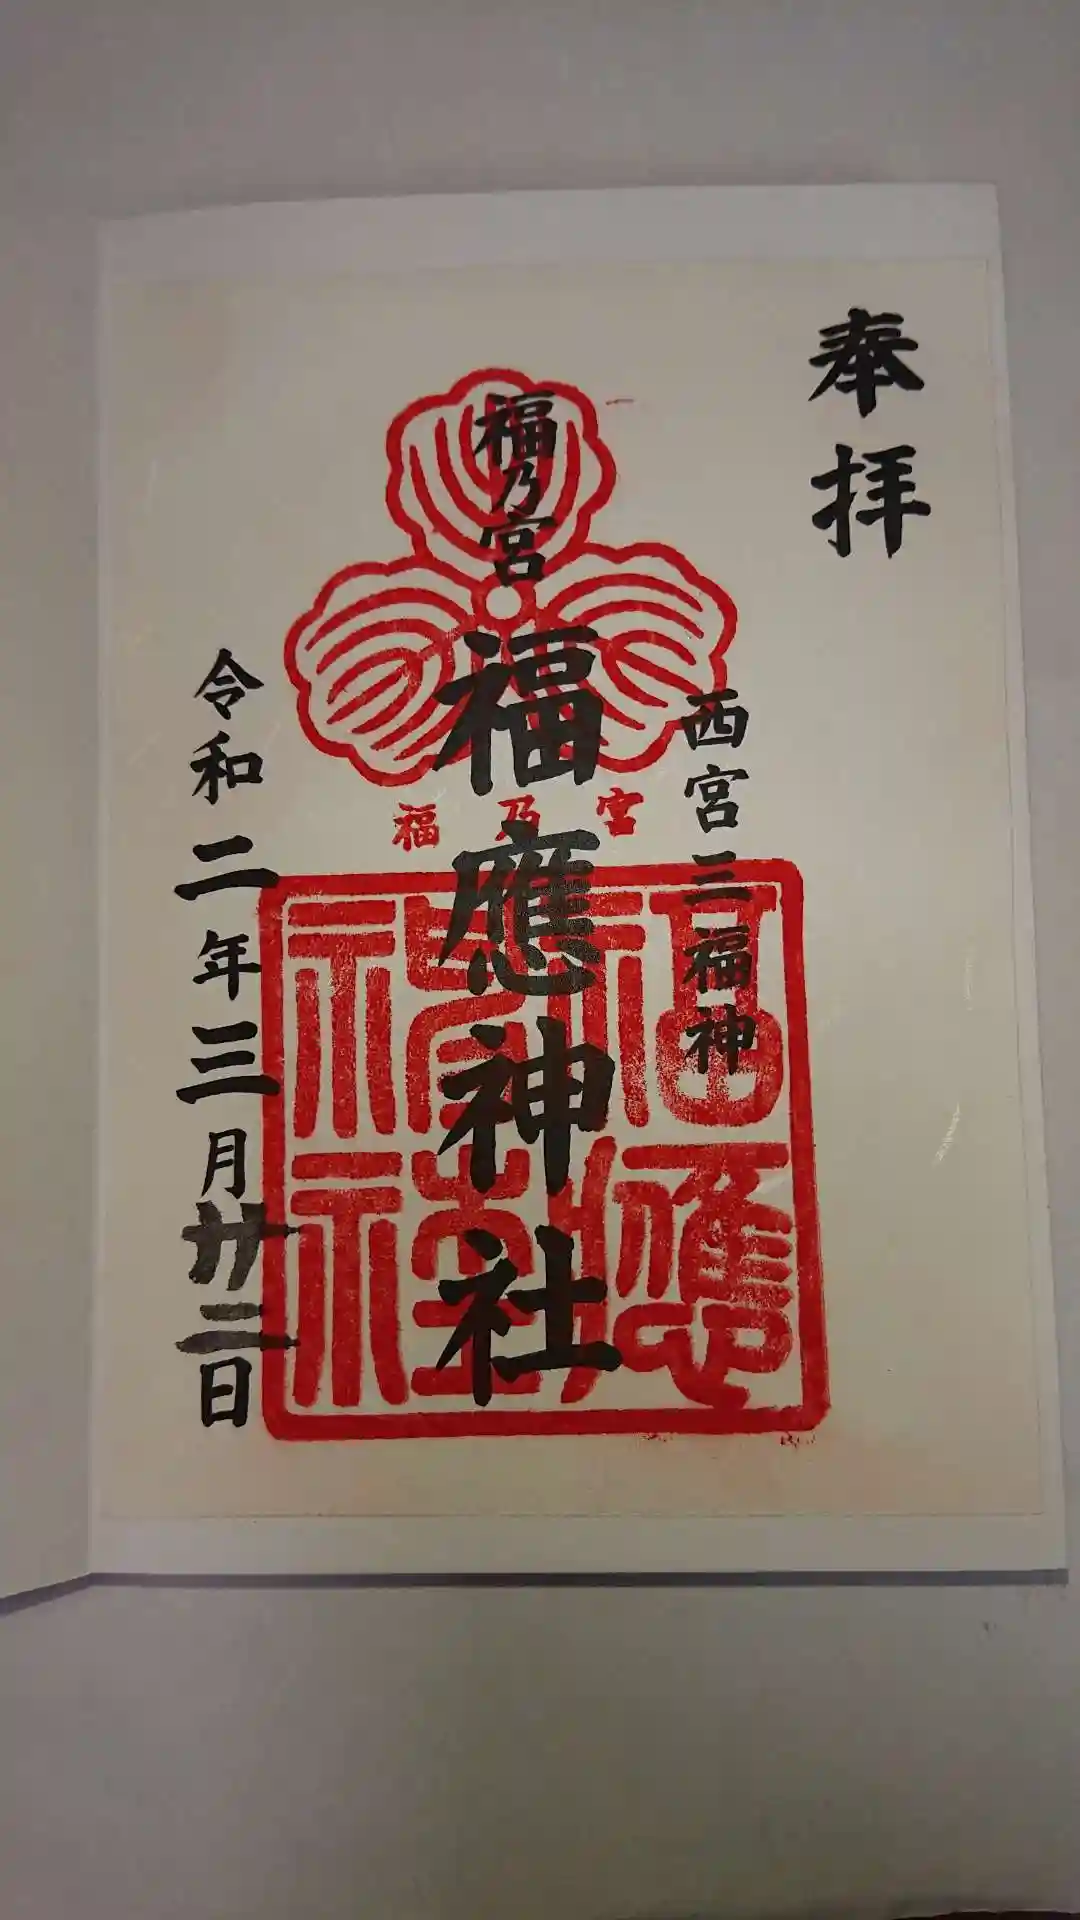 奉拝
西宮三福神
福乃宮
福應神社
福乃宮
福應神社
令和二年三月廿二日